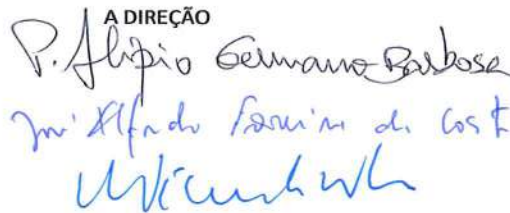 A DIREÇÃO
P. Alípio Germano Barbosa
José Alfredo Ferreira da Costa